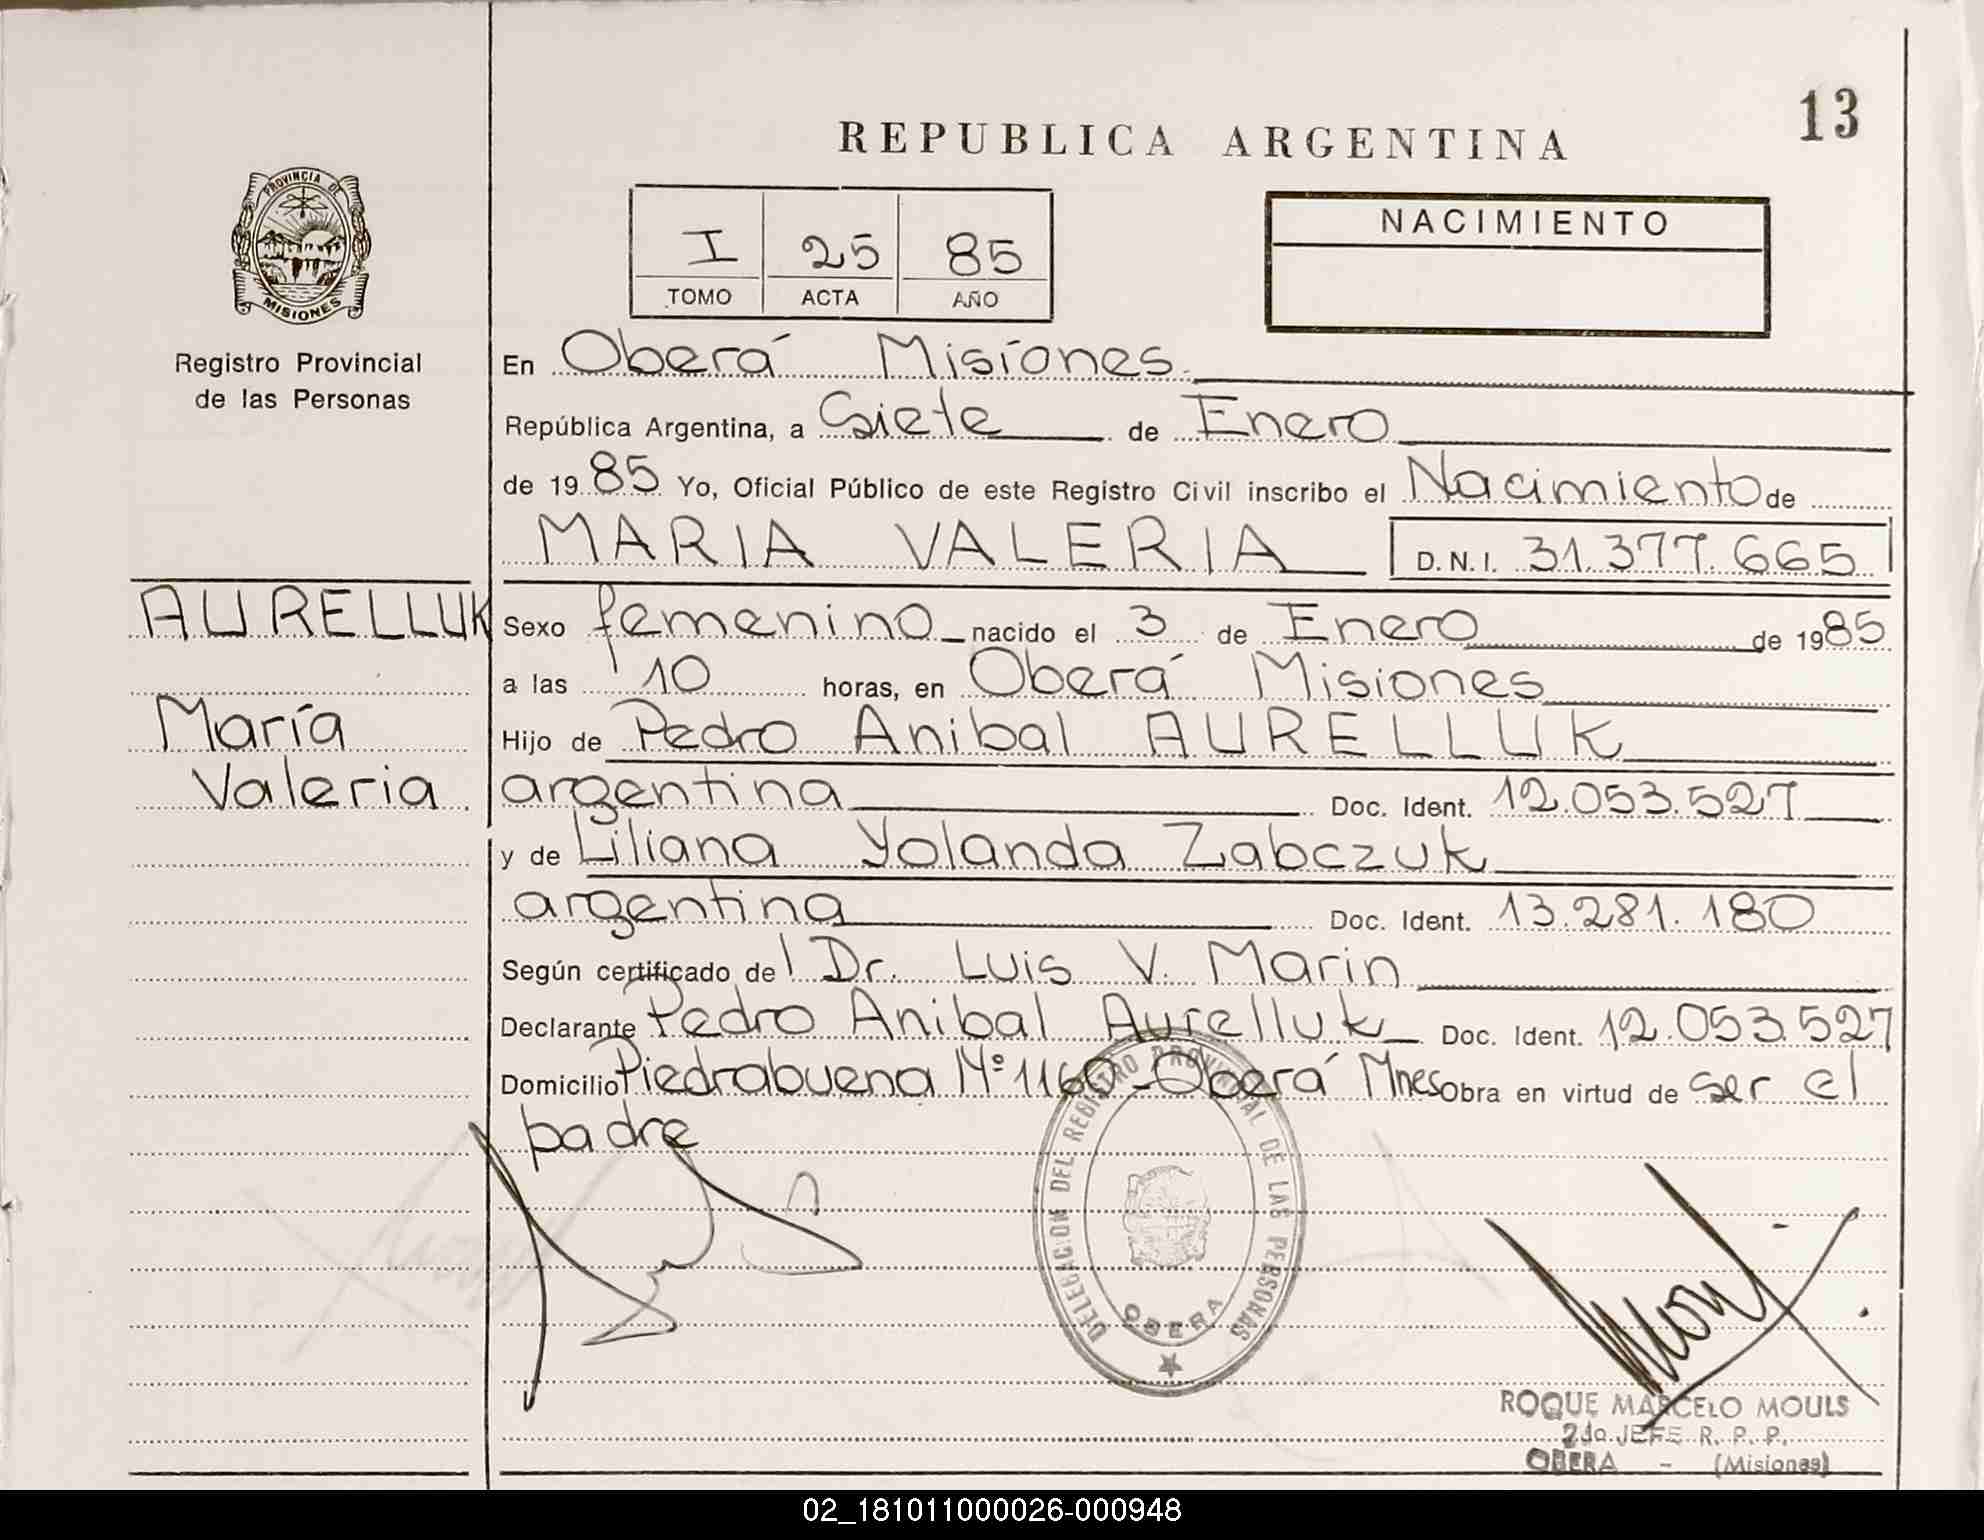 13
REPUBLICA ARGENTINA
PROVINCIA DE
MISIONES
Registro Provincial
de las Personas
I 25 85
TOMO ACTA AÑO
NACIMIENTO
En Oberá Misiones
República Argentina, a Siete de Enero
de 1985 Yo, Oficial Público de este Registro Civil inscribo el Nacimiento de
MARIA VALERIA D.N.I. 31.377.665
AURELLUK
María
Valeria
Sexo femenino nacido el 3 de Enero de 1985
a las 10 horas, en Oberá Misiones
Hijo de Pedro Anibal AURELLUK
argentina Doc. Ident. 12.053.527
y de Liliana Yolanda Zabczuk
argentina Doc. Ident. 13.281.180
Según certificado del Dr. Luis V. Marin
Declarante Pedro Anibal Aurelluk Doc. Ident. 12.053.527
Domicilio Piedrabuena Nº 1160 - Oberá Mnes Obra en virtud de ser el
padre
DELEGACION DEL REGISTRO PROVINCIAL DE LAS PERSONAS
OBERA
ROQUE MARCELO MOULS
2do JEFE R. P. P.
OBERA - (Misiones)
02_181011000026-000948